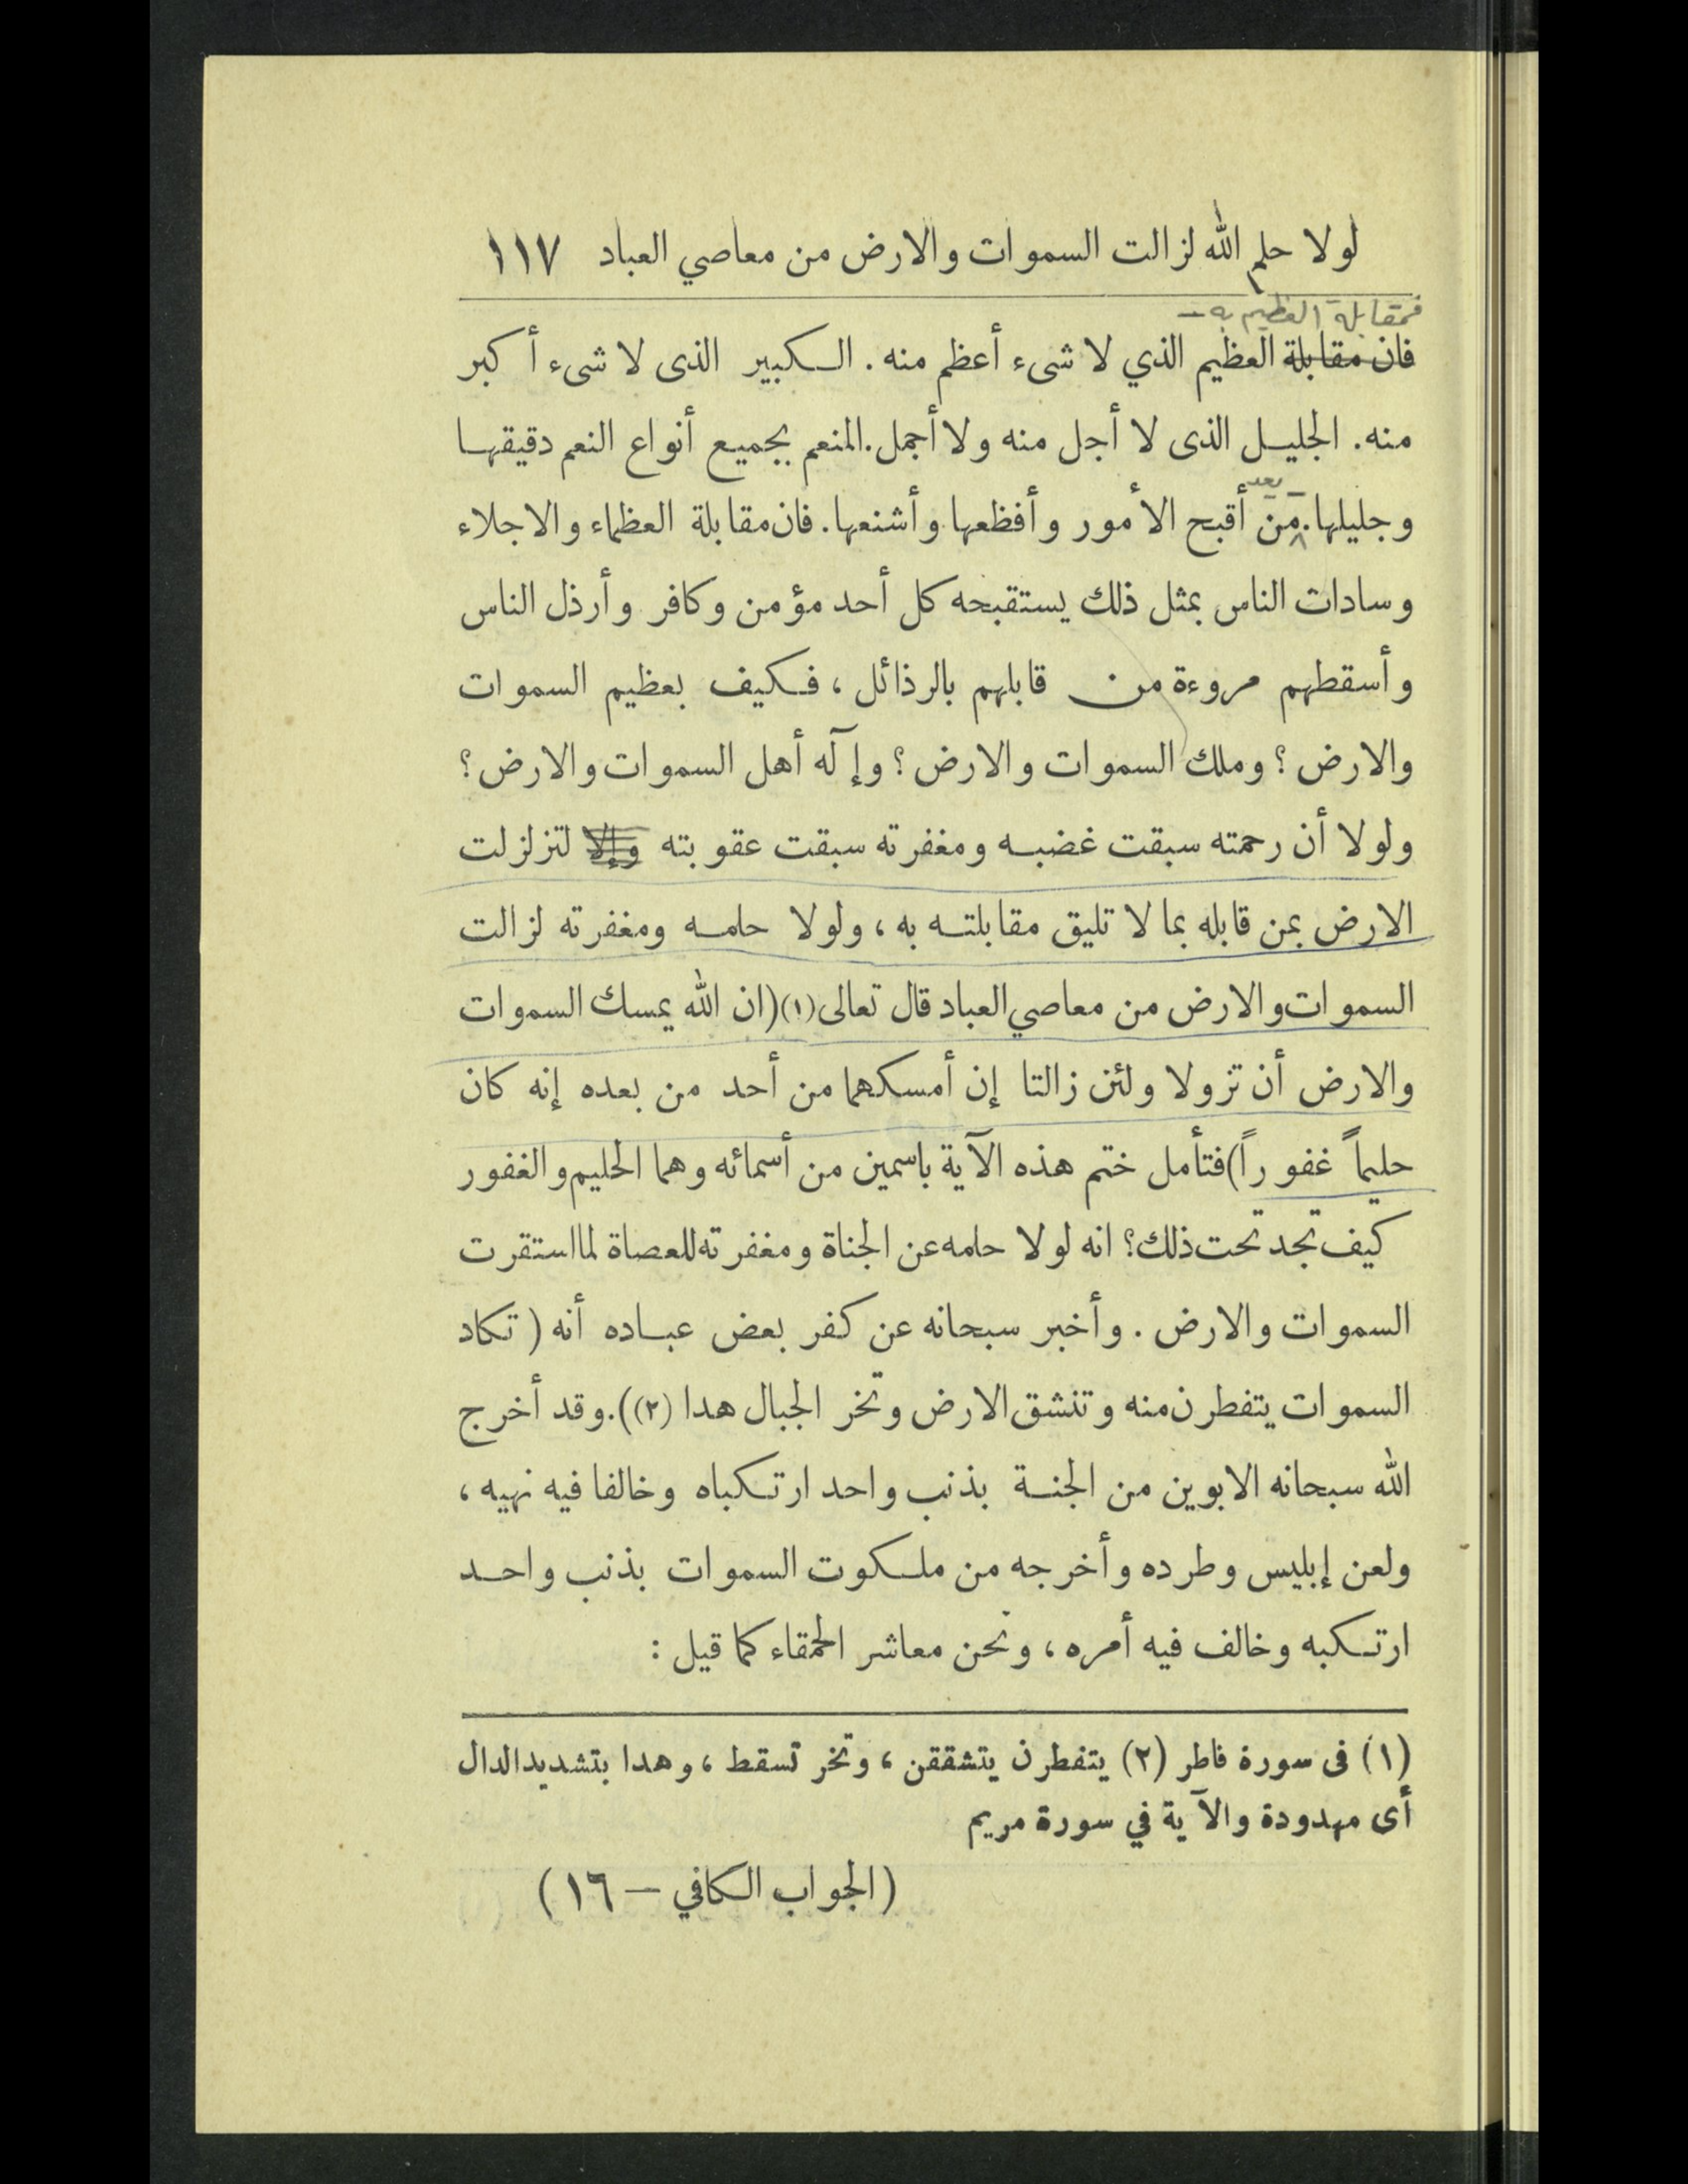 لولا حلم الله لزالت السموات والارض من معاصي العباد ١١٧
فمقابلة العظيم به –
فان مقابلة العظيم الذي لا شىء أعظم منه . الكبير الذى لا شىء أكبر
منه . الجليل الذى لا أجل منه ولا أجمل . المنعم بجميع أنواع النعم دقيقها
بعد
وجليلها . من أقبح الأمور وأفظعها وأشنعها . فان مقابلة العظماء والاجلاء
وسادات الناس بمثل ذلك يستقبحه كل أحد مؤمن وكافر وأرذل الناس
وأسقطهم مروءة من قابلهم بالرذائل ، فكيف بعظيم السموات
والارض ؟ وملك السموات والارض ؟ وإآله أهل السموات والارض ؟
ولولا أن رحمته سبقت غضبه ومغفرته سبقت عقوبته وإلا لتزلزلت
الارض بمن قابله بما لا تليق مقابلته به ، ولولا حلمه ومغفرته لزالت
السموات والارض من معاصي العباد قال تعالى (١) (ان الله يمسك السموات
والارض أن تزولا ولئن زالتا إن أمسكهما من أحد من بعده إنه كان
حليماً غفوراً) فتأمل ختم هذه الآية باسمين من أسمائه وهما الحليم والغفور
كيف تجد تحت ذلك؟ انه لولا حلمه عن الجناة ومغفرته للعصاة لما استقرت
السموات والارض . وأخبر سبحانه عن كفر بعض عباده أنه ( تكاد
السموات يتفطرن منه وتنشق الارض وتخر الجبال هدا (٢)). وقد أخرج
الله سبحانه الابوين من الجنة بذنب واحد ارتكباه وخالفا فيه نهيه ،
ولعن إبليس وطرده وأخرجه من ملكوت السموات بذنب واحد
ارتكبه وخالف فيه أمره ، ونحن معاشر الحمقاء كما قيل :
(١) فى سورة فاطر (٢) يتفطرن يتشققن ، وتخر تسقط ، وهدا بتشديد الدال
أى مهدودة والآية في سورة مريم
( الجواب الكافي – ١٦ )